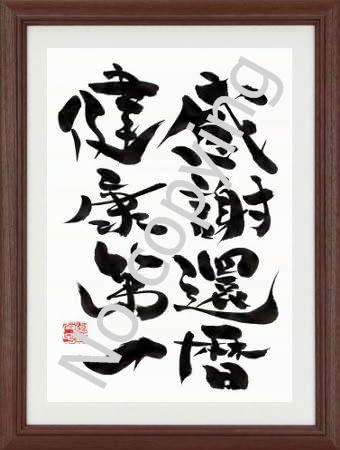 感謝還暦
健康第一
No copying